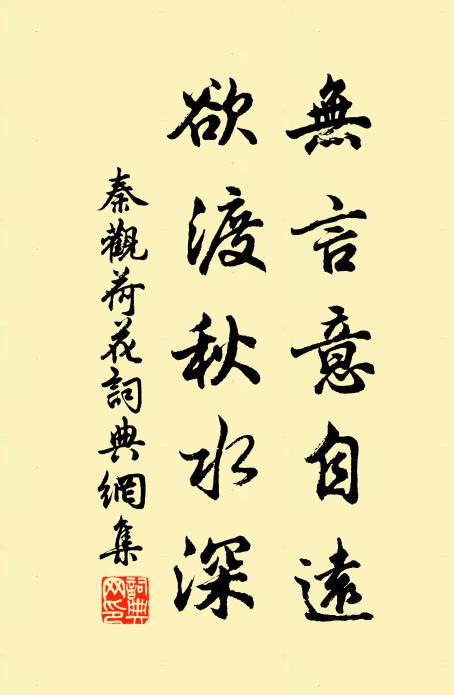 無言意自遠
欲渡秋水深
秦觀荷花詞典網集
詞典網印